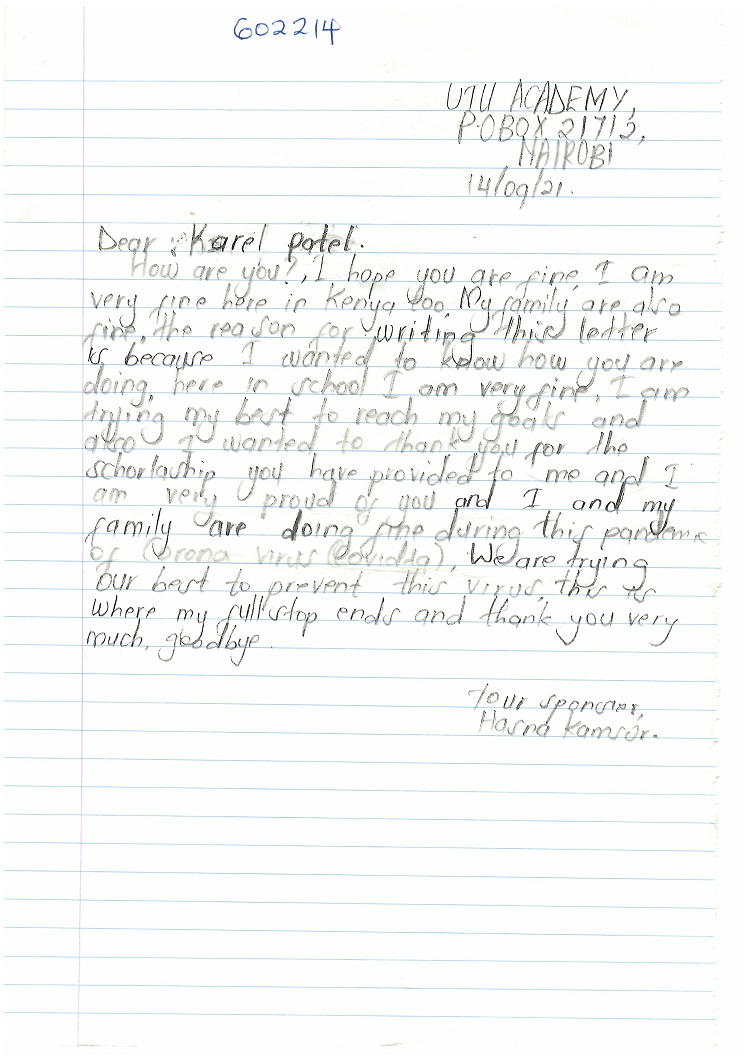 602214
UTU ACADEMY,
P.O BOX 21713,
NAIROBI
14/09/21.
Dear Karel patel.
How are you?, I hope you are fine, I am
very fine here in Kenya too. My family are also
fine, the reason for writing this letter
is because I wanted to know how you are
doing, here in school I am very fine, I am
trying my best to reach my goals and
also I wanted to thank you for the
schorlaship you have provided to me and I
am very proud of you and I and my
family are doing fine during this pandemic
of Corona virus (Covid19), We are trying
our best to prevent this virus, this is
where my full stop ends and thank you very
much, goodbye.
Your sponster,
Hasna